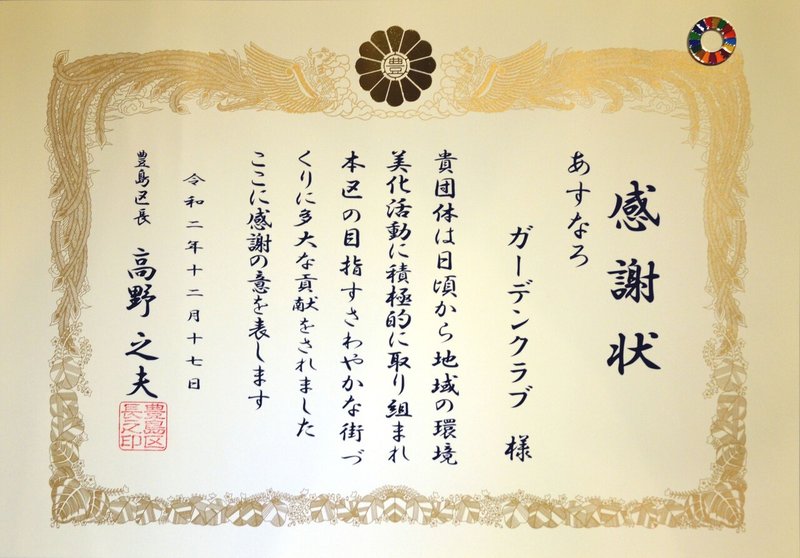 豊
感謝状
あすなろ
ガーデンクラブ 様
貴団体は日頃から地域の環境
美化活動に積極的に取り組まれ
本区の目指すさわやかな街づ
くりに多大な貢献をされました
ここに感謝の意を表します
令和二年十二月十七日
豊島区長 高野之夫
豊島区
長之印